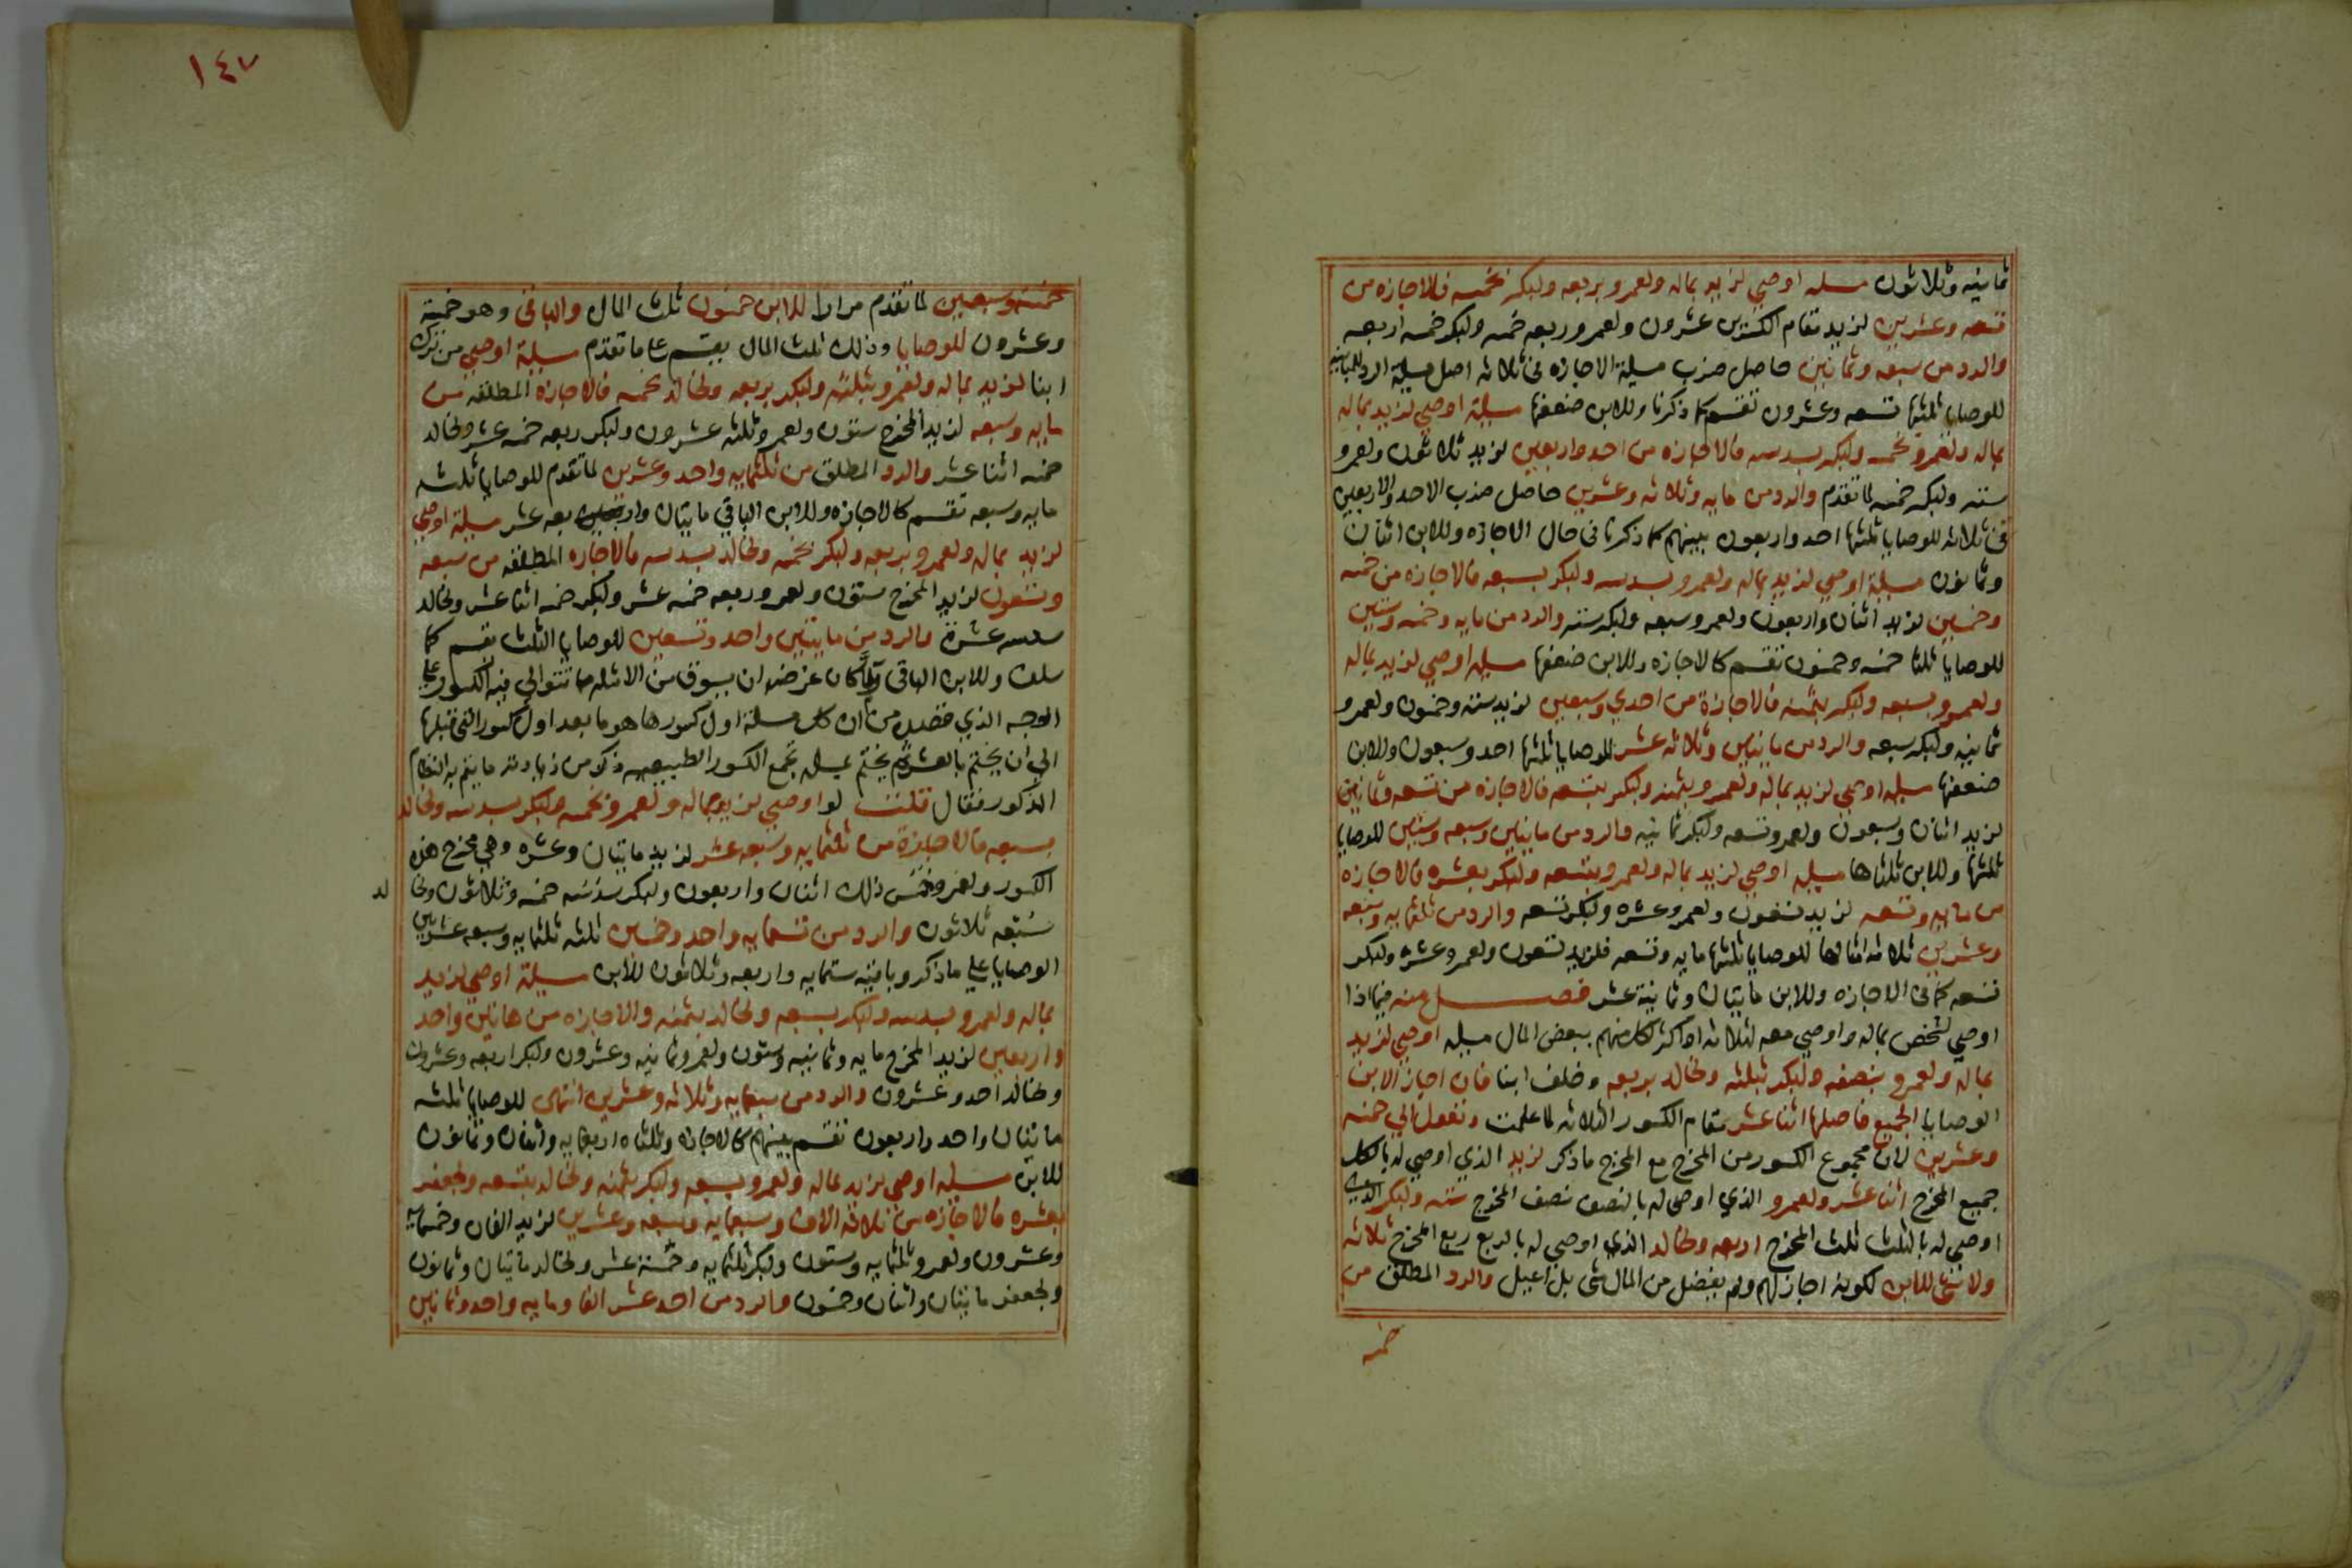 ثمانيه وثلاثون مسله اوصي لزيد بماله ولعمرو بربعه ولبكر بخمسه فالاجازه من
تسعه وعشرين لزيد مقام الكسرين عشرون ولعمرو ربعه خمسه ولبكر خمسه اربعه
والرد من سبعه وثمانين حاصل ضرب مسيلة الاجازه في ثلاثه اصل مسيلة الرد للمباينه
للوصايا ثلثها تسعه وعشرون تقسم كما ذكرنا وللابن ضعفها مسيلة اوصي لزيد بماله
بماله ولعمرو بخمسه ولبكر بسدسه فالاجازه من احد واربعين لزيد ثلاثون ولعمرو
سته ولبكر خمسه لما تقدم والرد من مايه وثلاثه وعشرين حاصل ضرب الاحد والاربعين
في ثلاثه للوصايا ثلثها احد واربعون بينهم كما ذكرنا في حال الاجازه وللابن اثنان
وثمانون مسيلة اوصي لزيد بماله ولعمرو بسدسه ولبكر بسبعه فالاجازه من خمسه
وخمسين لزيد اثنان واربعون ولعمرو سبعه ولبكر سته والرد من مايه وخمسه وستين
للوصايا ثلثها خمسه وخمسون تقسم كالاجازه وللابن ضعفها مسيله اوصي لزيد بماله
ولعمرو بسبعه ولبكر بثمنه فالاجازة من احدي وسبعين لزيد سته وخمسون ولعمرو
ثمانيه ولبكر سبعه والرد من مايتين وثلاثه عشر للوصايا ثلثها احد وسبعون وللابن
ضعفها مسيله اوصي لزيد بماله ولعمرو بثمنه ولبكر بتسعه فالاجازه من تسعه وثمانين
لزيد اثنان وسبعون ولعمرو تسعه ولبكر ثمانيه والرد من مايتين وسبعه وستين للوصايا
ثلثها وللابن ثلثاها مسيله اوصي لزيد بماله ولعمرو بتسعه ولبكر بعشره فالاجازه
من مايه وتسعه لزيد تسعون ولعمرو عشره ولبكر تسعه والرد من ثلثمايه وسبعه
وعشرين ثلاثه امثالها للوصايا ثلثها مايه وتسعه فلزيد تسعون ولعمرو عشره ولبكر
تسعه كما في الاجازه وللابن مايتان وثمانية عشر فصل منه فيما اذا
اوصي لشخص بماله واوصي معه لثلاثه او اكثر لكل منهم ببعض المال مسيله اوصي لزيد
بماله ولعمرو بنصفه ولبكر بثلثه ولخالد بربعه وخلف ابنا فان اجاز الابن
الوصايا الجميع فاصلها اثنا عشر مقام الكسور الثلاثه لما علمت وتعول الي خمسه
وعشرين لان مجموع الكسور من المخرج مع المخرج ما ذكر لزيد الذي اوصي له بالكل
جميع المخرج اثنا عشر ولعمرو الذي اوصي له بالنصف نصف المخرج سته ولبكر الذي
اوصي له بالثلث ثلث المخرج اربعه ولخالد الذي اوصي له بالربع ربع المخرج ثلاثه
ولا شي للابن لكونه اجاز لهم ولم يفضل من المال شي بل اعيل والرد المطلق من
خمسه
١٤٧
خمسه وسبعين لما تقدم مرارا للابن خمسون ثلثا المال والباقي وهو خمسة
وعشرون للوصايا وذلك ثلث المال يقسم علي ما تقدم مسيلة اوصي من ترك
ابنا لزيد بماله ولعمرو بثلثه ولبكر بربعه ولخالد بخمسه فالاجازه المطلقه من
مايه وسبعه لزيد المخرج ستون ولعمرو ثلثه عشرون ولبكر ربعه خمسه عشر ولخالد
خمسه اثنا عشر والرد المطلق من ثلثمايه واحد وعشرين لما تقدم للوصايا ثلثه
مايه وسبعه تقسم كالاجازه وللابن الباقي مايتان واربعه عشر مسيلة اوصي
لزيد بماله ولعمرو بربعه ولبكر بخمسه ولخالد بسدسه فالاجازه المطلقه من سبعه
وتسعون لزيد المخرج ستون ولعمرو ربعه خمسه عشر ولبكر خمسه اثنا عشر ولخالد
سدسه عشرة والرد من مايتين واحد وتسعين للوصايا الثلث تقسم كما
سلف وللابن الباقي ولما كان غرضه ان يسوق من الامثله ما تتوالي فيه الكسور علي
الوجه الذي فصل من ان كل مسلة اول كسورها هو ما بعد اول كسور التي قبلها
الي ان يختم بالعشر ثم يختم بمسله تجمع الكسور الطبيعيه ذكر من زيادته ما يتم به النظام
المذكور فقال قلت لو اوصي لزيد بماله ولعمرو بخمسه ولبكر بسدسه ولخالد
بسبعه فالاجازة من ثلثمايه وسبعه عشر لزيد مايتان وعشره وهي مخرج هذه
الكسور ولعمرو خمس ذلك اثنان واربعون ولبكر سدسه خمسه وثلاثون ولخا لد
سبعه ثلاثون والرد من تسعمايه واحد وخمسين ثلثه ثلثمايه وسبعه عشر بين
الوصايا علي ما ذكر وباقيه ستمايه واربعه وثلاثون للابن مسيلة اوصي لزيد
بماله ولعمرو بسدسه ولبكر بسبعه ولخالد بثمنه والاجازه من مايتين واحد
واربعين لزيد المخرج مايه وثمانيه وستون ولعمرو ثمانيه وعشرون ولبكر اربعه وعشرون
ولخالد احد وعشرون والرد من سبعمايه وثلاثه وعشرين انتهي للوصايا ثلثه
مايتان واحد واربعون تقسم بينهم كالاجازه وثلثاه اربعمايه واثنان وثمانون
للابن مسيله اوصي لزيد بماله ولعمرو بسبعه ولبكر بثمنه ولخالد بتسعه ولجعفر
بعشره فالاجازه من ثلاثة الاف وسبعمايه وسبعه وعشرين لزيد الفان وخمسمايه
وعشرون ولعمرو ثلثمايه وستون ولبكر ثلثمايه وخمسة عشر ولخالد مايتان وثمانون
ولجعفر مايتان واثنان وخمسون والرد من احد عشر الفا ومايه واحد وثمانين